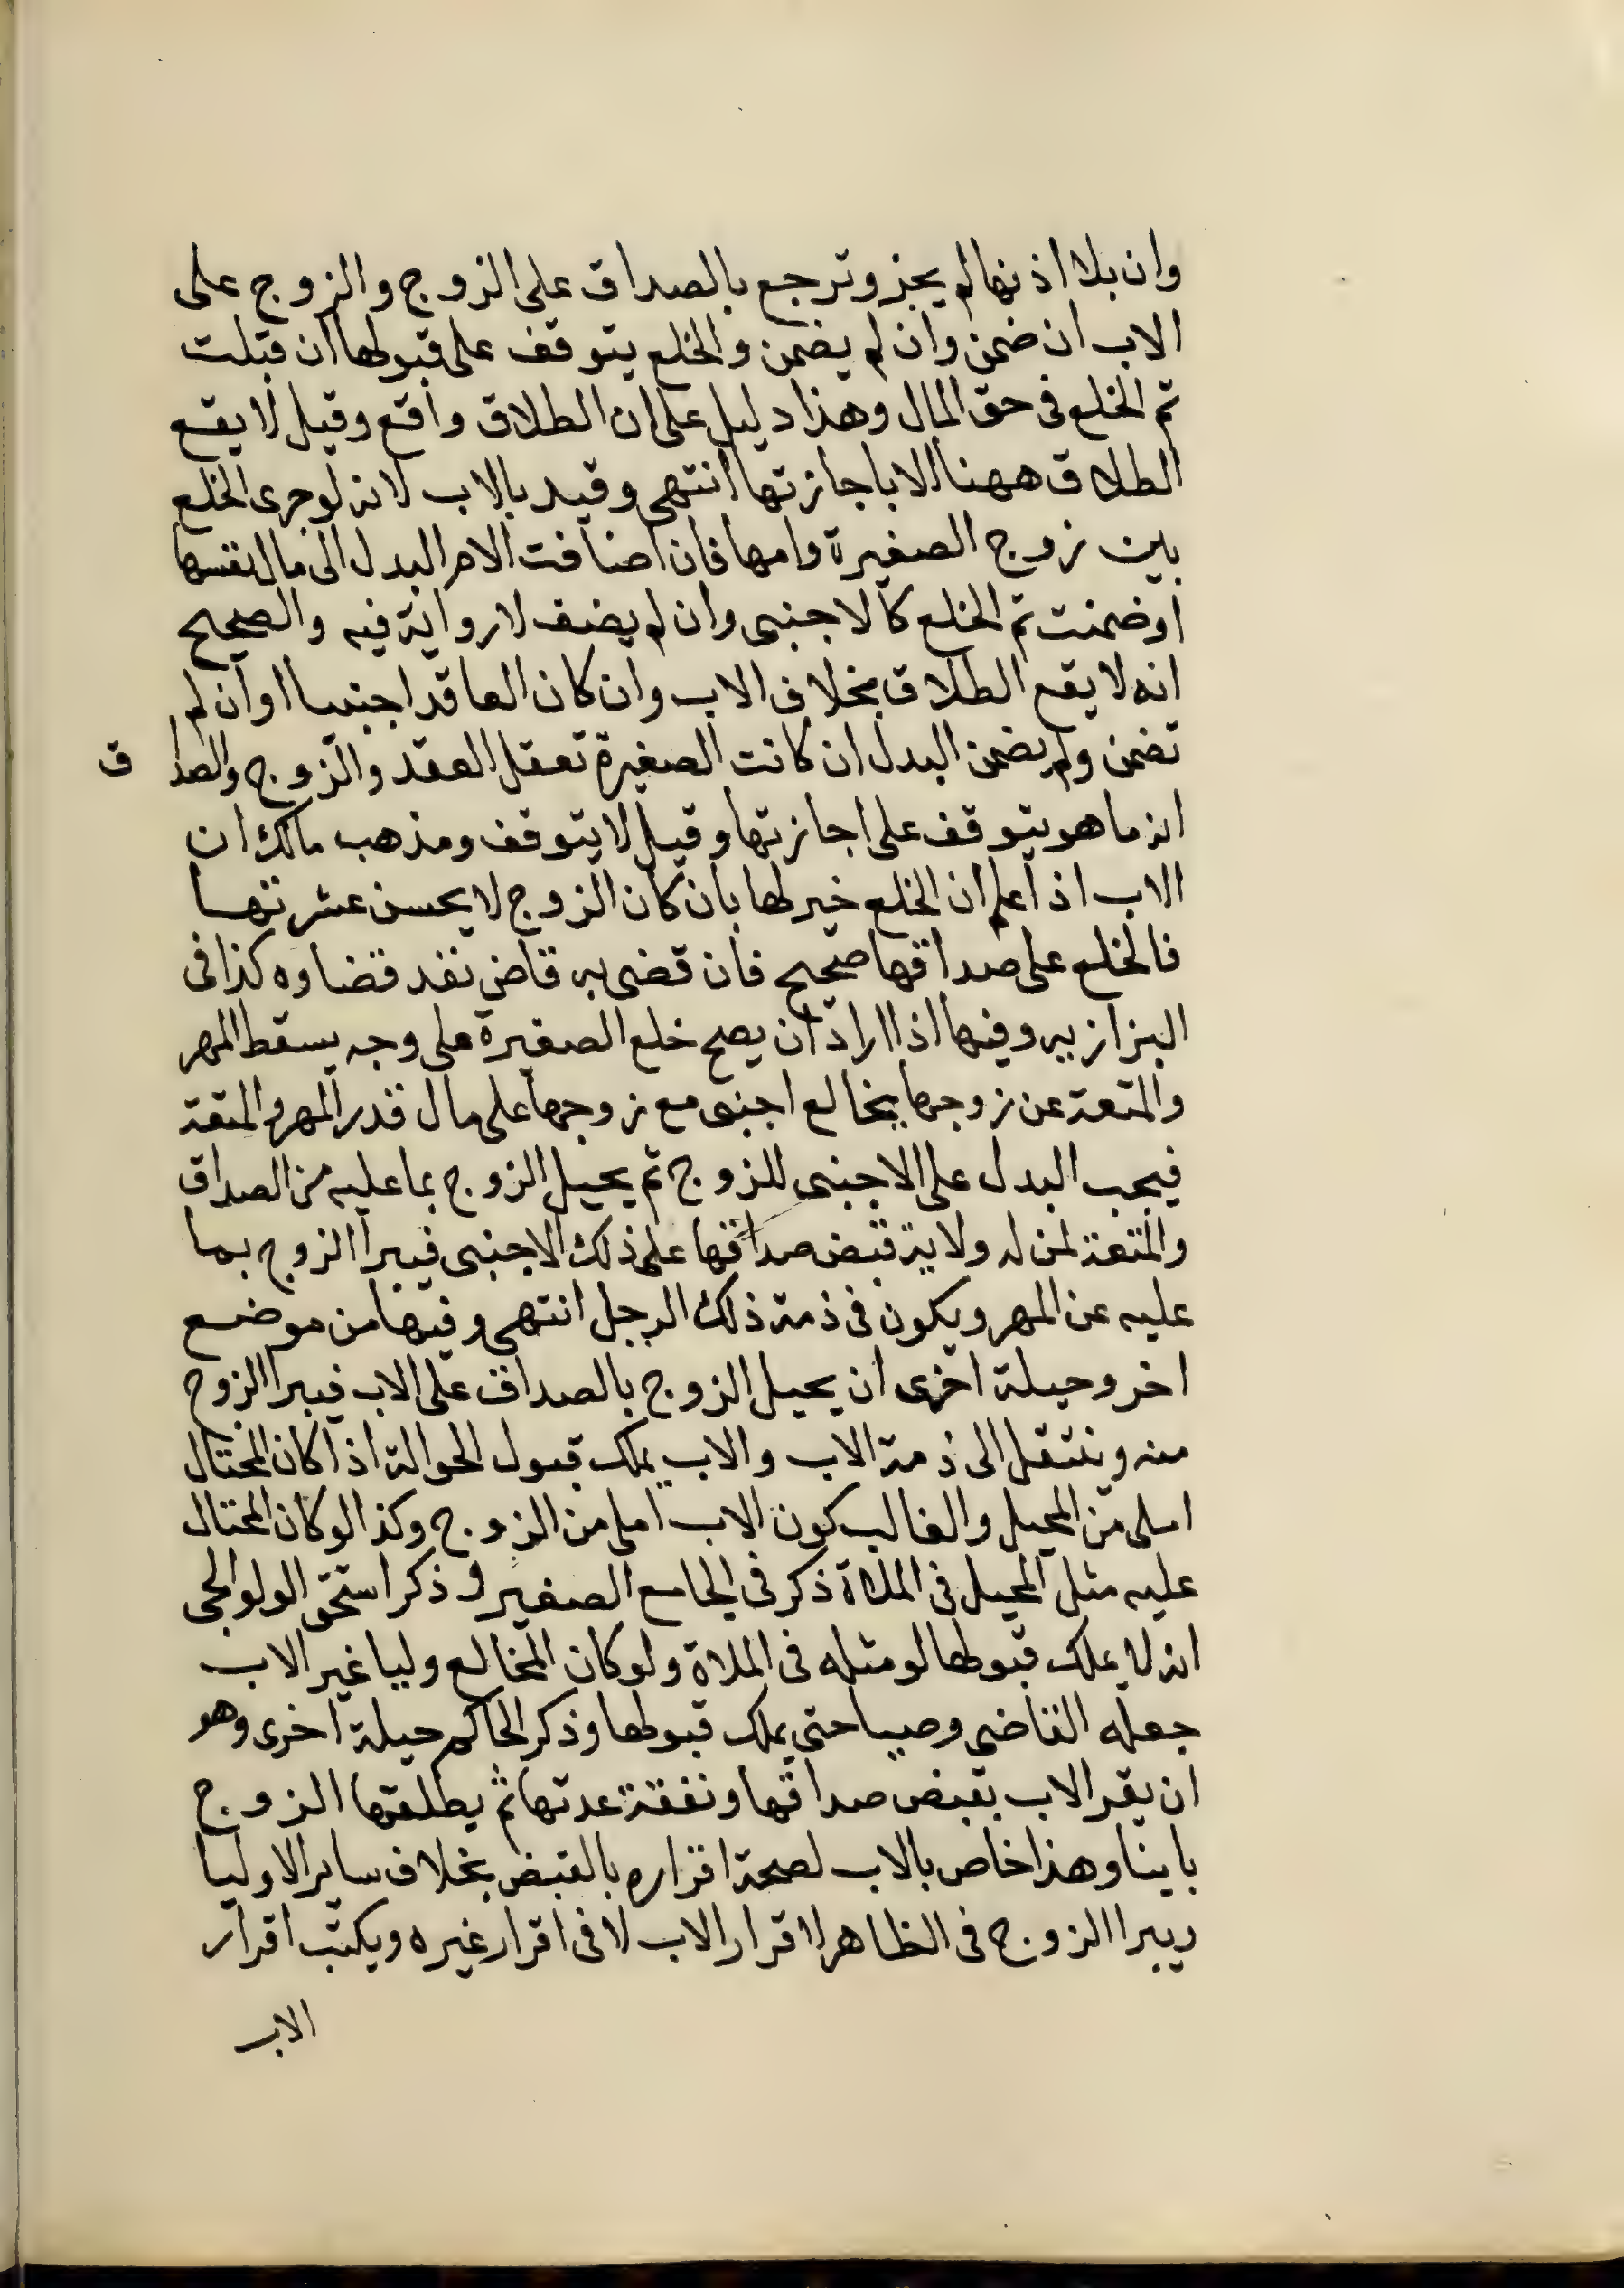 وان بلا اذنها لم يجز وترجع بالصداق على الزوج والزوج على
الاب ان ضمن وان لم يضمن والخلع يتوقف على قبولها ان قبلت
تم الخلع فى حق المال وهذا دليل على ان الطلاق واقع وقيل لا يقع
الطلاق ههنا الا باجازتها انتهى وقيد بالاب لانه لو جرى الخلع
بين زوج الصغيرة وامها فان اضافت الام البدل الى مال نفسها
او ضمنت تم الخلع كالاجنبى وان لم يضف لا رواية فيه والصحيح
انه لا يقع الطلاق بخلاف الاب وان كان العاقد اجنبيا اوان لم
تضمن ولم يضمن البدل ان كانت الصغيرة تعقل العقد والزوج والصداق
انه ما هو يتوقف على اجازتها وقيل لا يتوقف ومذهب مالك ان
الاب اذا علم ان الخلع خير لها بان كان الزوج لا يحسن عشرتها
فالخلع على صداقها صحيح فان قضى به قاض نفد قضاوه كذا فى
البزازيه وفيها اذا اراد ان يصح خلع الصغيرة على وجه يسقط المهر
والمتعة عن زوجها يخالع اجنبى مع زوجها على مال قدر المهر والمتعة
فيجب البدل على الاجنبى للزوج ثم يحيل الزوج بما عليه من الصداق
والمتعة لمن له ولاية قبض صداقها على ذلك الاجنبى فيبرا الزوج بما
عليه عن المهر ويكون فى ذمة ذلك الرجل انتهى وفيها من موضع
اخر وحيلة اخرى ان يحيل الزوج بالصداق على الاب فيبرا الزوج
منه وينتقل الى ذمة الاب والاب يملك قبول الحوالة اذا كان المحتال
املى من المحيل والغالب كون الاب املى من الزوج وكذا لو كان المحتال
عليه مثل المحيل فى الملاة ذكر فى الجامع الصغير وذكر استحق الولوالجى
انه لا يملك قبولها لو مثله فى الملاة ولو كان المخالع وليا غير الاب
جعله القاضى وصيا حتى يملك قبولها وذكر الحاكم حيلة اخرى وهو
ان يقر الاب بقبض صداقها ونفقة عدتها ثم يطلقها الزوج
باينا وهذا خاص بالاب لصحة اقراره بالقبض بخلاف ساير الاوليا
ويبرا الزوج فى الظاهر لاقرار الاب لا فى اقرار غيره ويكتب اقرار
الاب